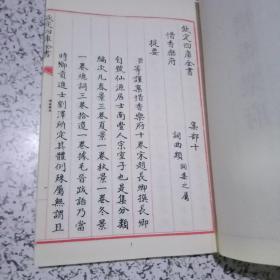 欽定四庫全書
集部十
惜香樂府
詞曲類 詞集之屬
提要
臣等謹案惜香樂府十卷宋趙長卿撰長卿
自號仙源居士南豐人宗室子也是集分類
編次凡春景三卷夏景一卷秋景一卷冬景
一卷總詞三卷拾遺一卷據毛晉跋語乃當
時鄉貢進士劉澤所定其體例殊屬無謂且
欽定四庫全書